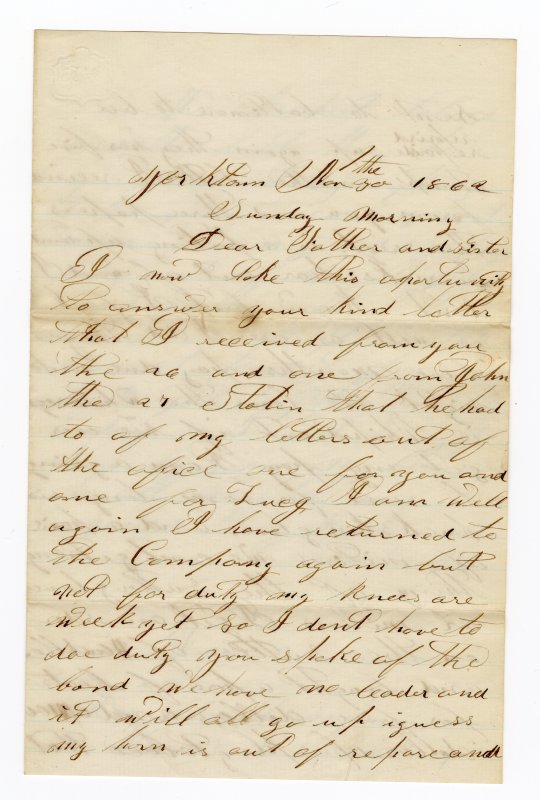 Yorktown Nov the 30 1862
Sunday Morning
Dear Father and sister
I now take this oportunity
to answer your kind letter
that I received from you
the 20 and one from John
the 21 Statin that he had
to of my letters out of
the ofice one for you and
one for Lucy I am well
again I have returned to
the Company again but
not for duty my knees are
week yet so I dont have to
doe duty you spoke of the
band we have no leader and
it will all go up iguess
my horn is out of repare and